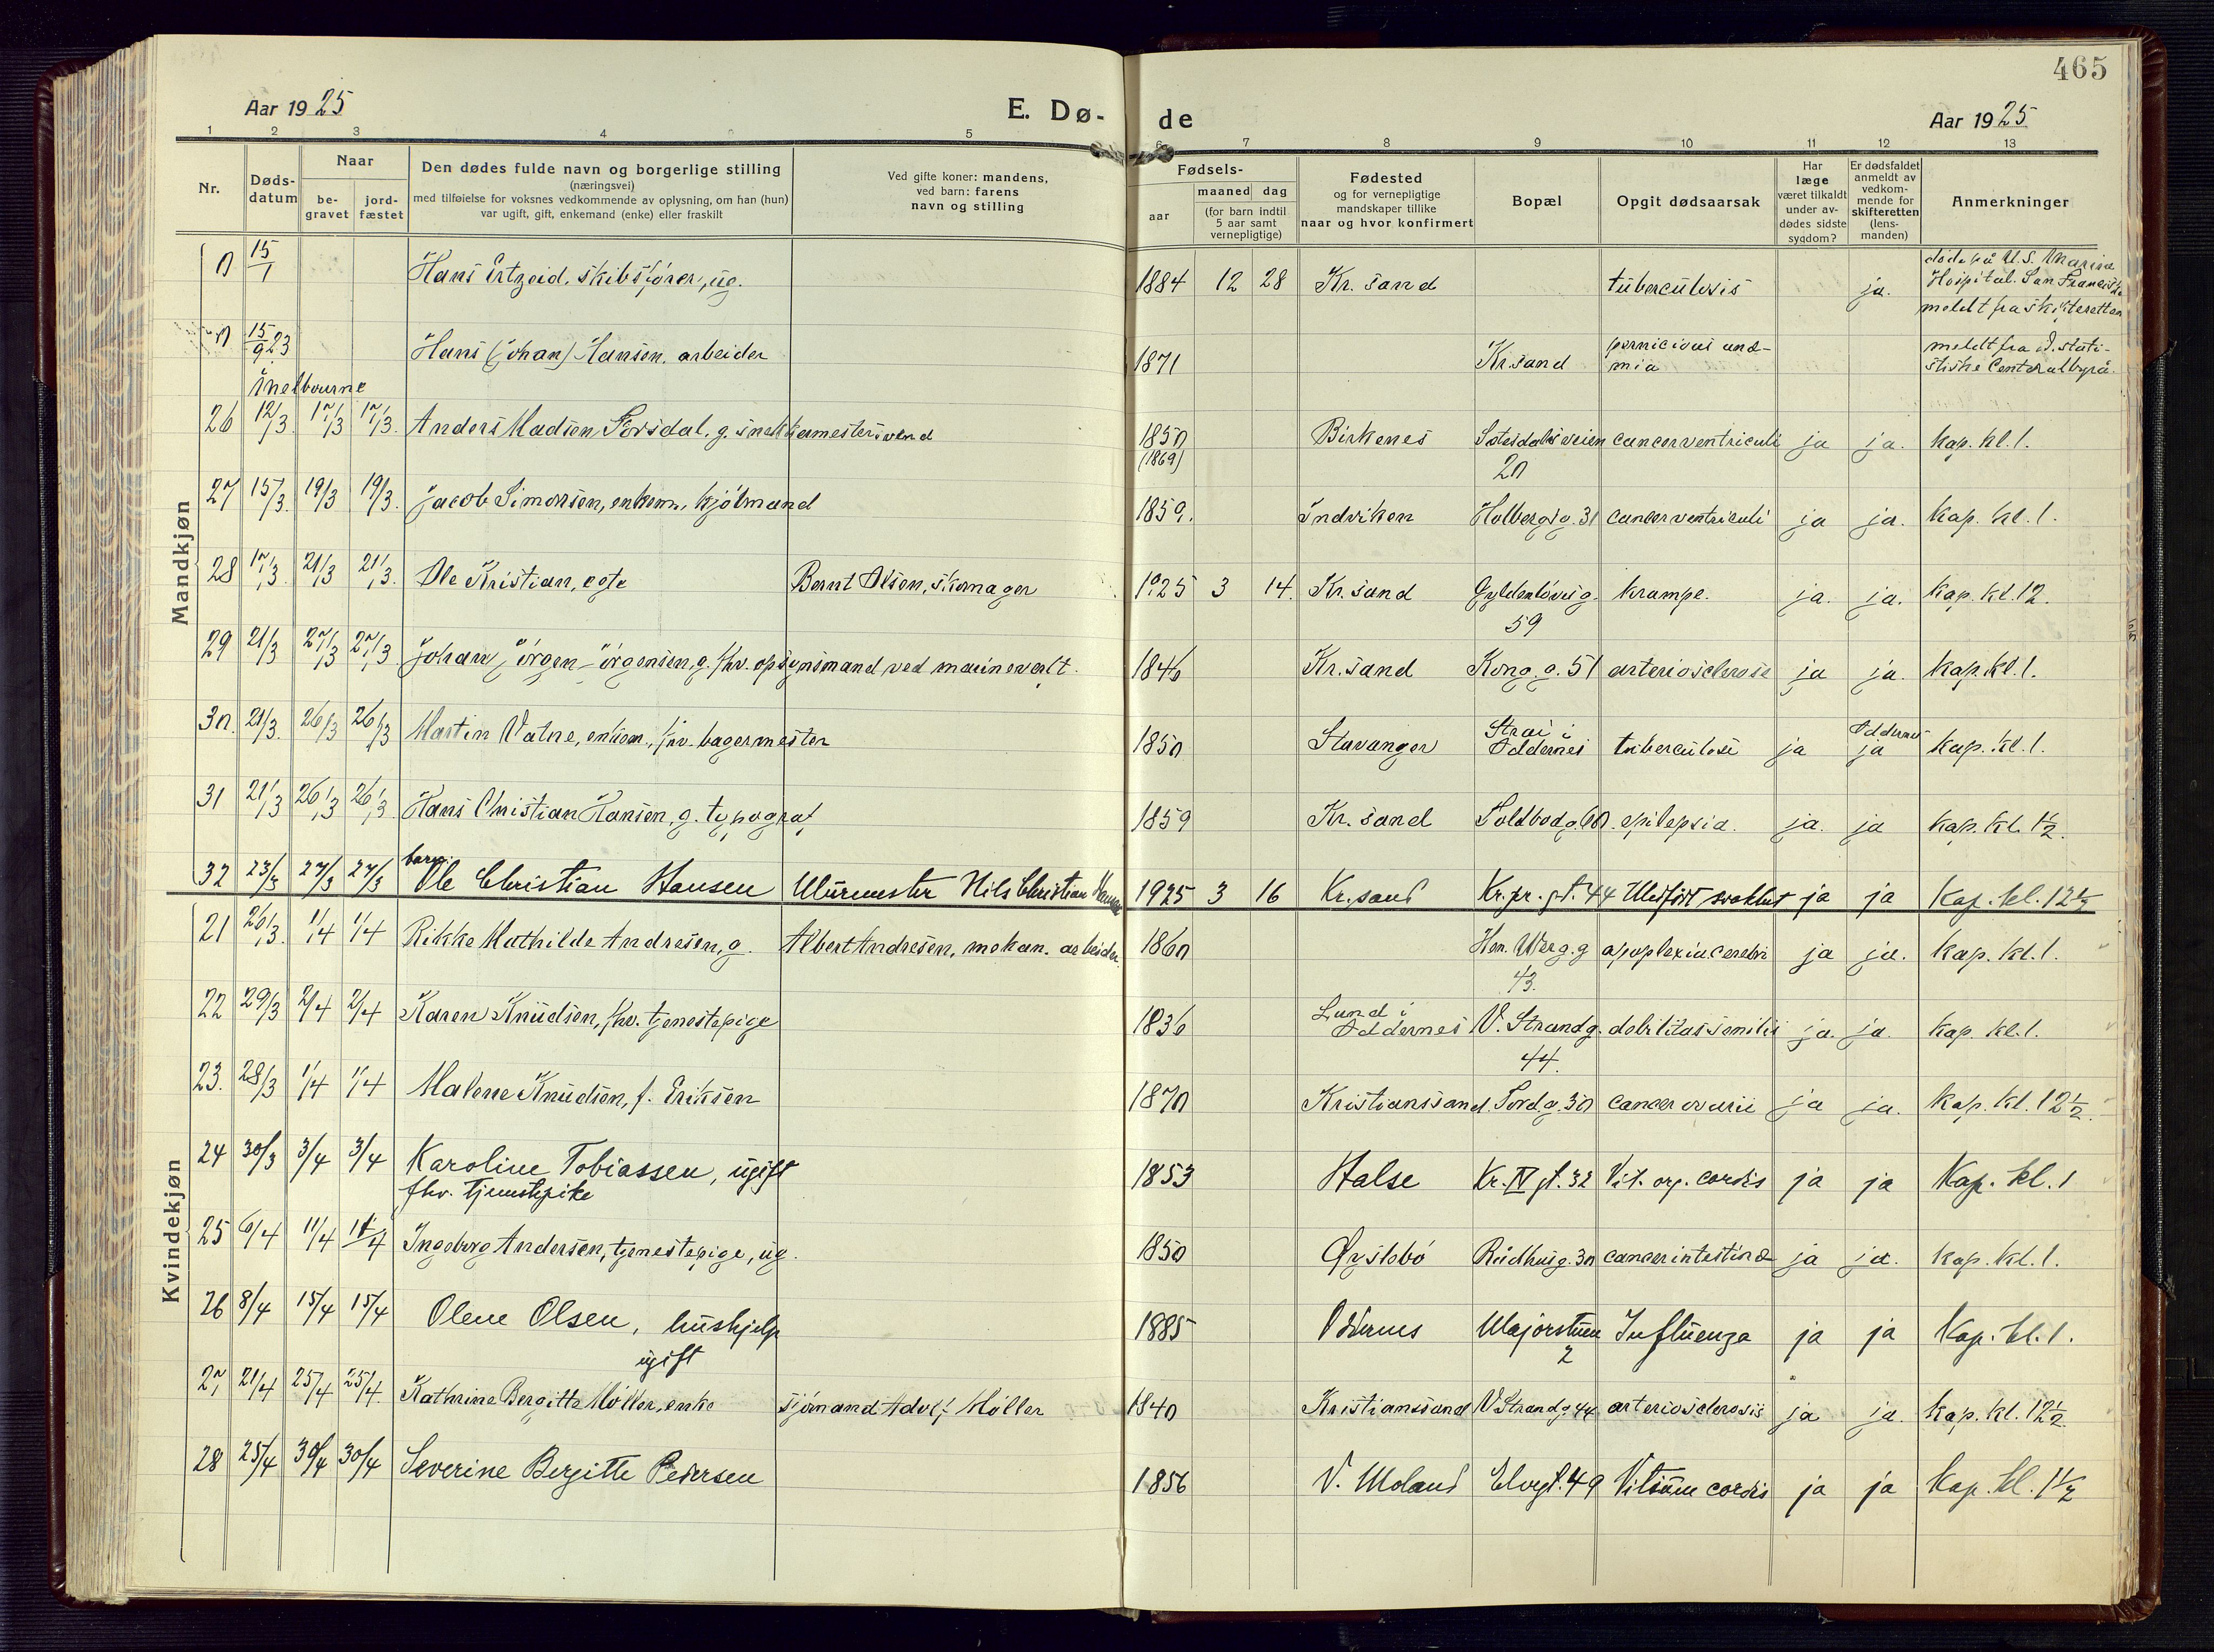 465
Aar 1925
E. Dø-
de
Aar 1925
1 2 3 4 5 6 7 8 9 10 11 12 13
Nr.
Døds-
datum
Naar
be-
gravet
jord-
fæstet
Den dødes fulde navn og borgerlige stilling
(næringsvei)
med tilføielse for voksnes vedkommende av oplysning, om han (hun)
var ugift, gift, enkemand (enke) eller fraskilt
Ved gifte koner: mandens,
ved barn: farens
navn og stilling
Fødsels-
aar
maaned dag
(for barn indtil
5 aar samt
vernepligtige)
Fødested
og for vernepligtige
mandskaper tillike
naar og hvor konfirmert
Bopæl
Opgit dødsaarsak
Har
læge
været tilkaldt
under av-
dødes sidste
sygdom?
Er dødsfaldet
anmeldt av
vedkom-
mende for
skifteretten
(lens-
manden)
Anmerkninger
Mandkjøn
0 15/1 Hans Ertzeid, skibsfører, ug. 1884 12 28 Kr.sand tuberculosis ja.
døde på U.S. Marine
Hospital. San Francisko
meldt fra skifteretten
0 15/9 23 Hans (Johan) Hansen, arbeider 1871 Kr.sand
pernicious anæ-
mia
meldt fra d. stati-
stiske Centralbyrå.
Melbourne
26 12/3. 17/3 17/3. Anders Madsen Forsdal, g. snekkermestersvend 1850 Birkenes cancer ventriculi ja ja. Kap. kl. 1.
(1869)
20
27 15/3. 19/3 19/3. Jacob Simonsen, enkem., kjølmand 1859. Indviken Holbergsg. 31 cancer ventriculi ja ja. Kap. kl. 1.
28 17/3. 21/3 21/3. Ole Kristian, egte Bernt Olsen, skomager 1925 3 14. Kr.sand Gyldenløvesg. krampe. ja. ja. Kap. kl. 12.
59
29 21/3 27/3 27/3 Johan Jörgen Jörgensen, g. fhv. opsynsmand ved marineverft. 1846 Kr.sand Kong. g. 51 arteriosclerose ja ja. Kap. kl. 1.
30. 21/3. 26/3 26/3 Martin Vatne, enkem., fhv. bagermester 1850 Stavanger Strai i Oddernes tuberculose ja Oddernes ja Kap. kl. 1.
31 21/3 26/3 26/3 Hans Christian Hansen, g. typograf 1859 Kr.sand Toldbodg. 60. epilepsia. ja. ja Kap. kl. 1½.
32 23/3 27/3 27/3 barn Ole Christian Hansen Murmester Nils Christian Hansen 1925 3 16 Kr.sand Kr.pr. gt. 44 Medfødt svakhet ja ja Kap. kl. 12½
Kvindekjøn
21 26/3. 1/4 1/4 Rikke Mathilde Andresen, g. Albert Andresen, mekan. arbeider 1860 Hen. Werg. g apoplexia cerebri ja ja. Kap. kl. 1.
43.
22 29/3 2/4 2/4 Karen Knudsen, fhv. tjenestepige 1836 Lund i Oddernes V. Strandg. debilitas senilis ja. ja. Kap. kl. 1.
44.
23. 28/3 1/4 1/4 Malene Knudsen, f. Eriksen 1870 Kristianssand. Tordg. 30 cancer ovarii ja ja. Kap. kl. 12½.
24 30/3 3/4 3/4 Karoline Tobiassen, ugift 1853 Halse Kr. IV gt. 32 Vit. org. cordis ja ja Kap. kl. 1
fhv. tjenestepike
25 6/4 11/4 11/4 Ingeborg Andersen, tjenestepige, ug. 1850 Øyslebö Rådhusg. 30 cancer intestinæ ja ja. Kap. kl. 1.
26 8/4 15/4 15/4 Olene Olsen, hushjelp 1885 Oddernes Majorstuen Influenza ja ja Kap. kl. 1.
ugift
2
27 21/4 25/4 25/4. Kathrine Bergitte Möller, enke sjömand Adolf Möller 1840 Kristianssand V. Strandg. 44 arteriosclerosis ja ja. Kap. kl. 12½.
28 25/4 30/4 30/4 Severine Bergitte Pedersen 1856 V. Moland Elvegt. 49 Vitium cordis ja ja Kap. kl. 1½